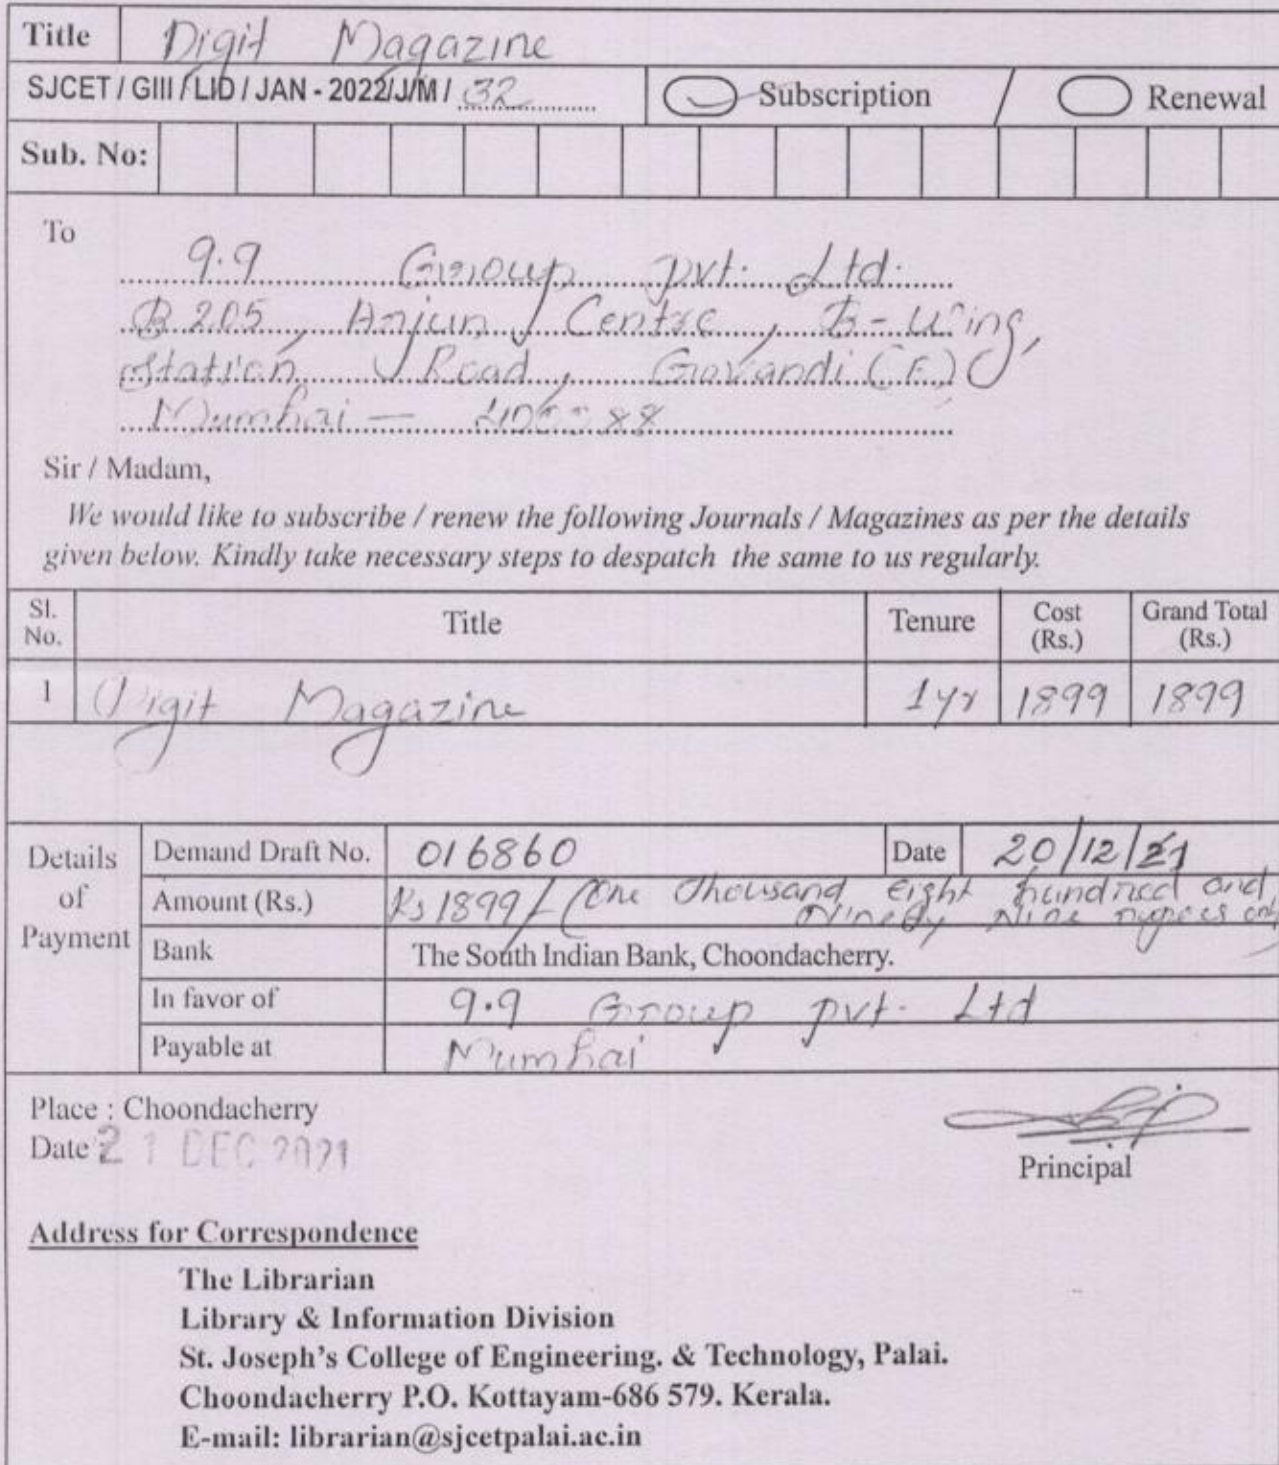 Title Digit Magazine
SJCET / GIII / LID / JAN - 2022/J/M / 32 Subscription / Renewal
Sub. No:
To
9.9 Group pvt. Ltd.
B 205, Anjun Centre, B-Wing,
Station Road, Govandi (E)
Mumbai — 400088
Sir / Madam,
We would like to subscribe / renew the following Journals / Magazines as per the details
given below. Kindly take necessary steps to despatch the same to us regularly.
Sl. No. Title Tenure Cost (Rs.) Grand Total (Rs.)
1 Digit Magazine 1 yr 1899 1899
Details of Payment
Demand Draft No. 016860 Date 20/12/21
Amount (Rs.) Rs 1899/- (One Thousand eight hundred and
Ninety Nine rupees only
Bank The South Indian Bank, Choondacherry.
In favor of 9.9 Group pvt. Ltd
Payable at Mumbai
Place : Choondacherry
Date : 21 DEC 2021
Principal
Address for Correspondence
The Librarian
Library & Information Division
St. Joseph's College of Engineering. & Technology, Palai.
Choondacherry P.O. Kottayam-686 579. Kerala.
E-mail: librarian@sjcetpalai.ac.in